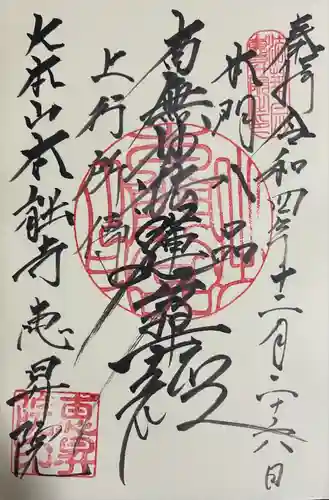 奉行 令和四年十二月二十六日
本門八品
南無妙法蓮華経
上行所伝
大本山本能寺 恵昇院